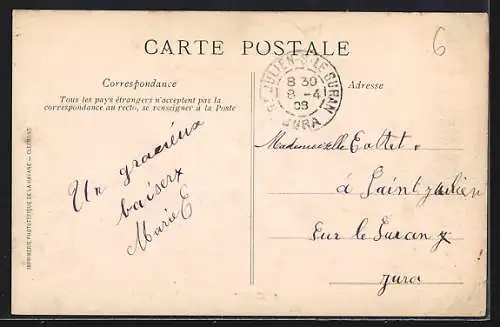 CARTE POSTALE
6
Correspondance
Tous les pays étrangers n'acceptent pas la
correspondance au recto, se renseigner à la Poste
Adresse
ST JULIEN-S-LE SURAN
8 30
8 - 4
09
JURA
Un gracieux
baiser
Marie E
Mademoiselle
à Saint Julien
Sur le Suran
Jura